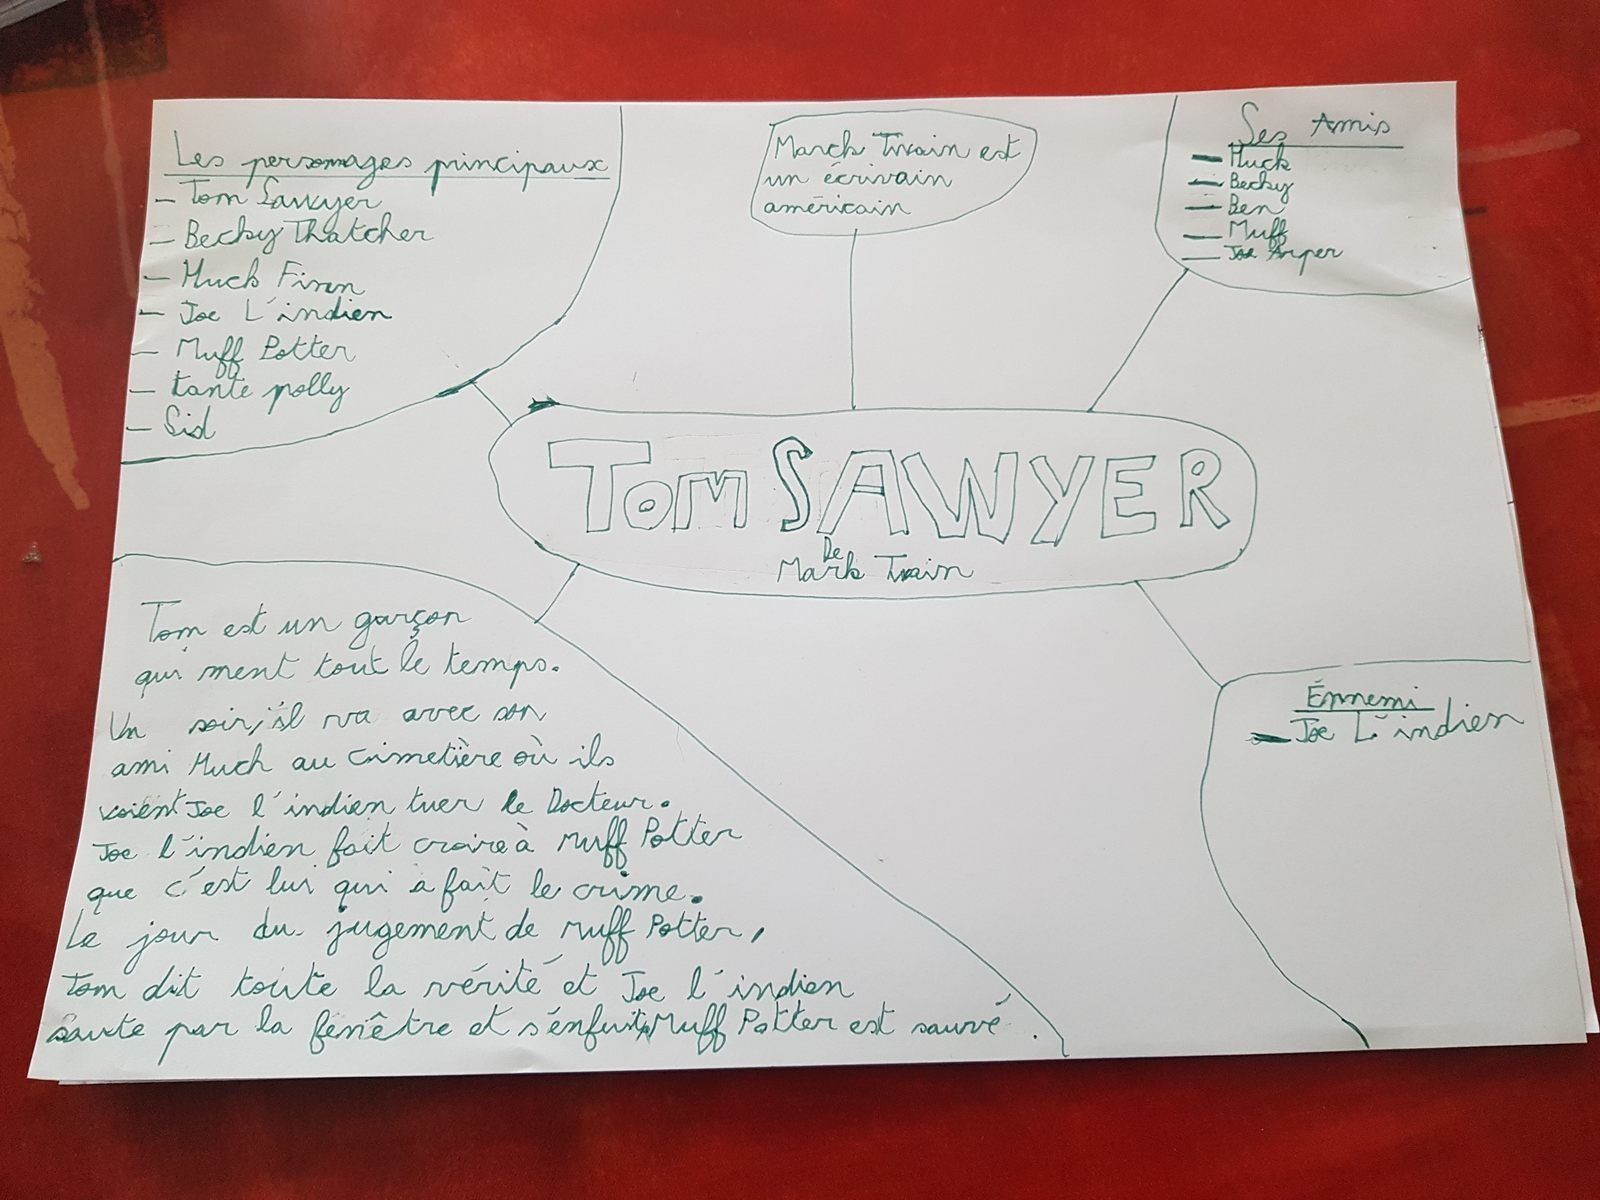 Les personnages principaux
- Tom Sawyer
- Becky Thatcher
- Huck Finn
- Joe L'indien
- Muff Potter
- tante polly
- Sid
Marck Twain est
un écrivain
américain
Ses Amis
- Huck
- Becky
- Ben
- Muff
- Joe Arper
TOM SAWYER
De
Mark Twain
Tom est un garçon
qui ment tout le temps.
Un soir, il va avec son
ami Huck au cimetière où ils
voient Joe l'indien tuer le Docteur.
Joe l'indien fait croire à Muff Potter
que c'est lui qui a fait le crime.
Le jour du jugement de Muff Potter,
Tom dit toute la vérité et Joe l'indien
saute par la fenêtre et s'énfuit, Muff Potter est sauvé.
Énnemi
- Joe L'indien